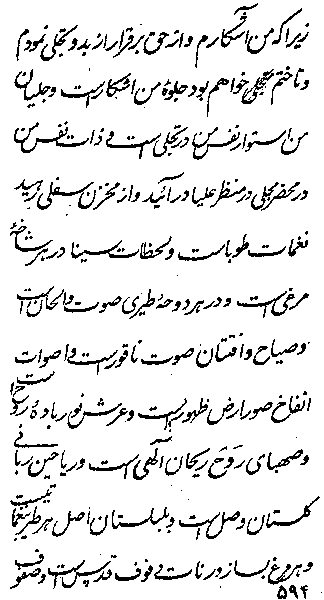 زیرا که من آشکارم و از حق برقرار از بدو تجلی نمودم
و تا ختم متجلی خواهم بود جلوهٔ من آشکار است و جلیان
من استوار نفس من در تجلی است و ذات نفس من
در محضر مجلی در منظر علیا در آئید و از مخزن سفلی رهید
نغمات طوباست و لحظات سینا در هر شاخهٔ
مرغی است و در هر دوحهٔ طیری صوت و الحان است
و صیاح و افتتان صوت ناقور است و اصوات
انفاخ صور ارض ظهور است و عرش نور بادهٔ روح است
و صهبای رَوح ریحان الهی است و ریاحین ربانی
گلستان وصل است و بلبلستان اصل هر طیر بنغماتیست
و هر مرغ بساز در نات بی فوف قدس است و صفوف
۵۹۴